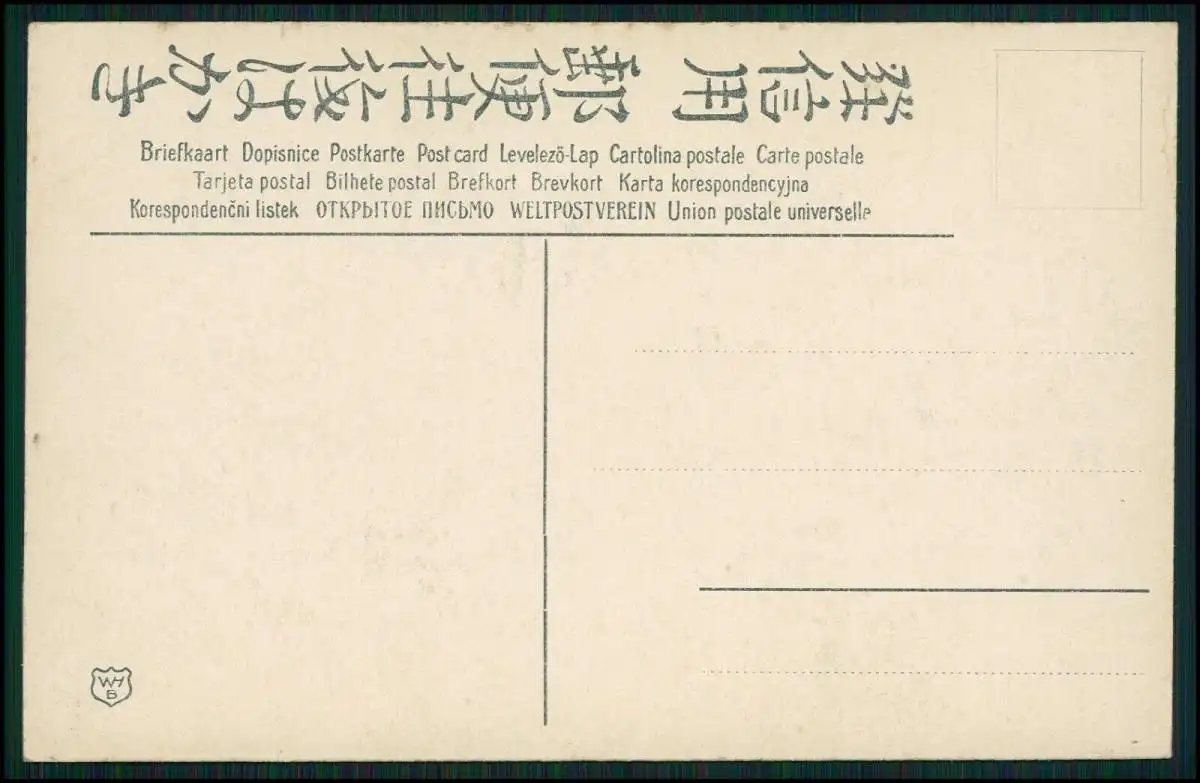 發信用 郵便往復はがき
Briefkaart Dopisnice Postkarte Post card Levelező-Lap Cartolina postale Carte postale
Tarjeta postal Bilhete postal Brefkort Brevkort Karta korespondencyjna
Korespondenčni listek ОТКРЫТОЕ ПИСЬМО WELTPOSTVEREIN Union postale universelle
WH
B